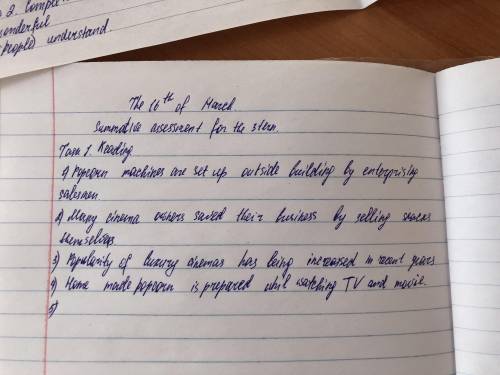 2. Comple
wonderful
people) understand.
The 16th of March.
Summative assessment for the term.
Task 1. Reading
1) Popcorn machines are set up outside building by enterprising
salesmen.
2) Many cinema owners saved their business by selling snacks
themselves.
3) Popularity of luxury cinemas has being increased in recent years
4) Home made popcorn is prepared whil watching TV and movie.
5)